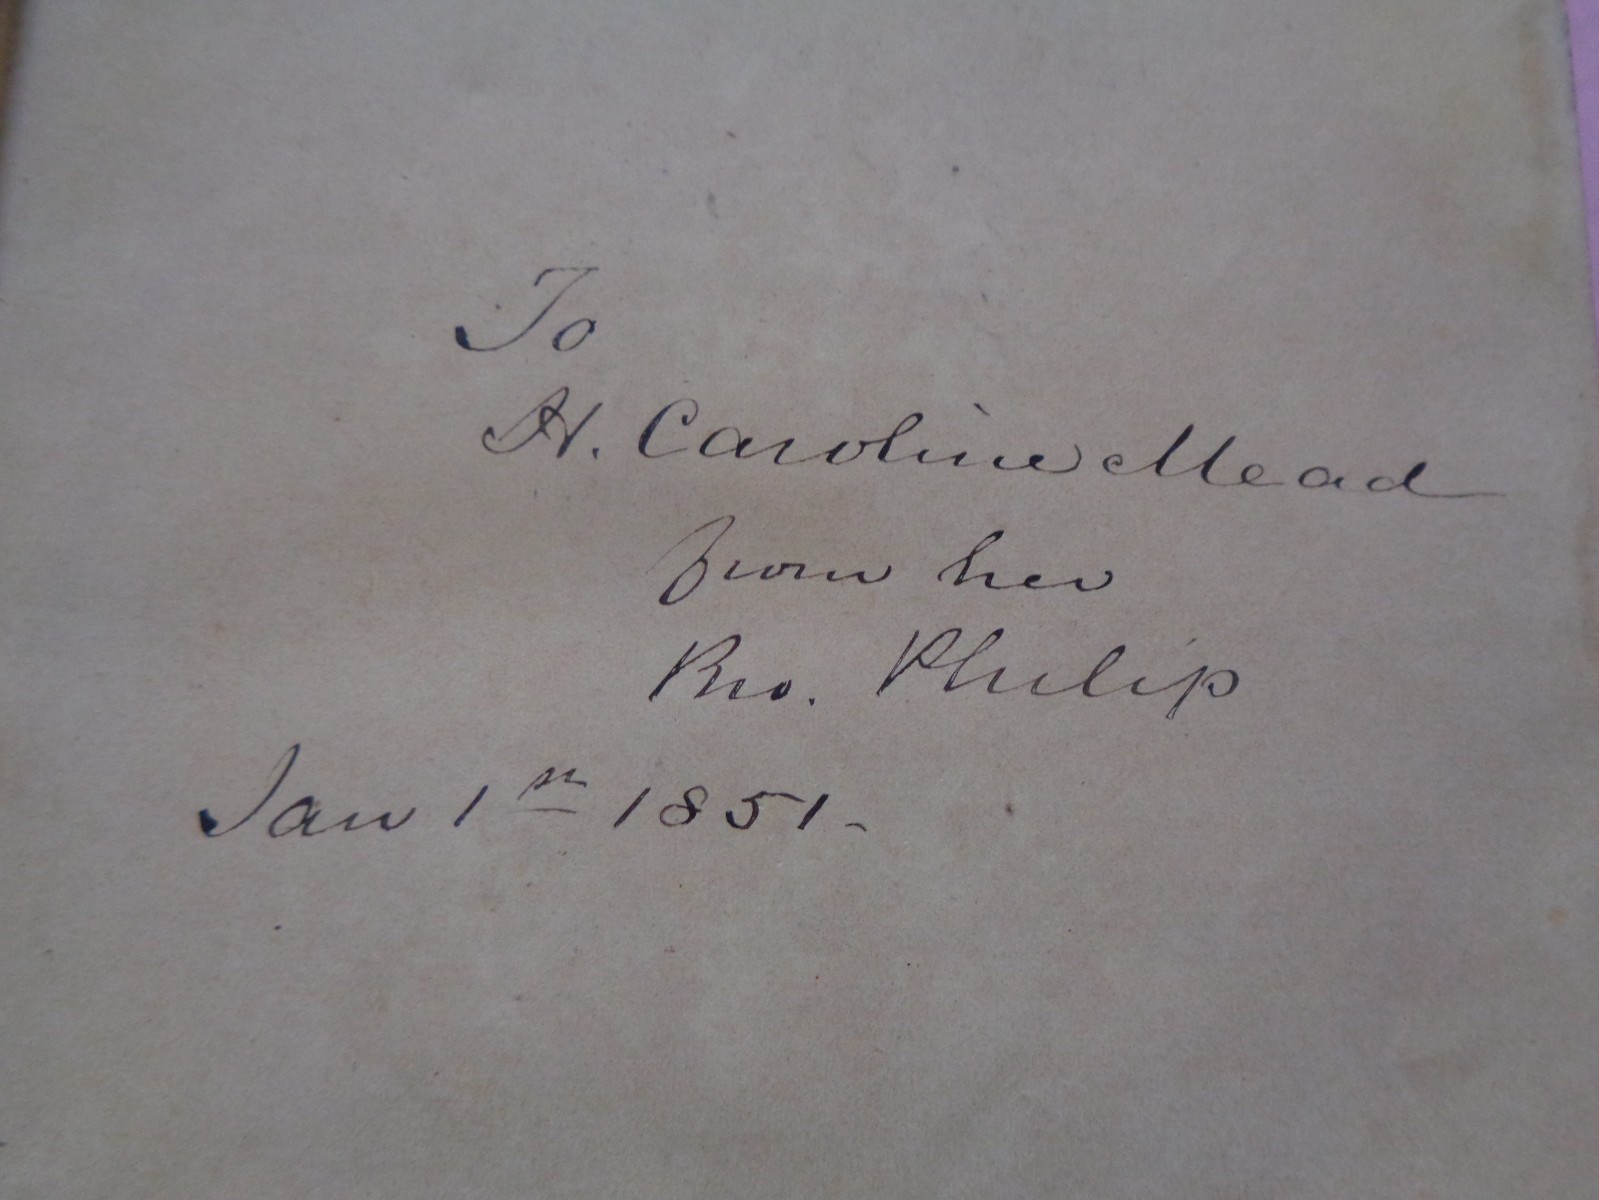 To
H. Caroline Mead
from her
Bro. Philip
Jan 1st 1851.